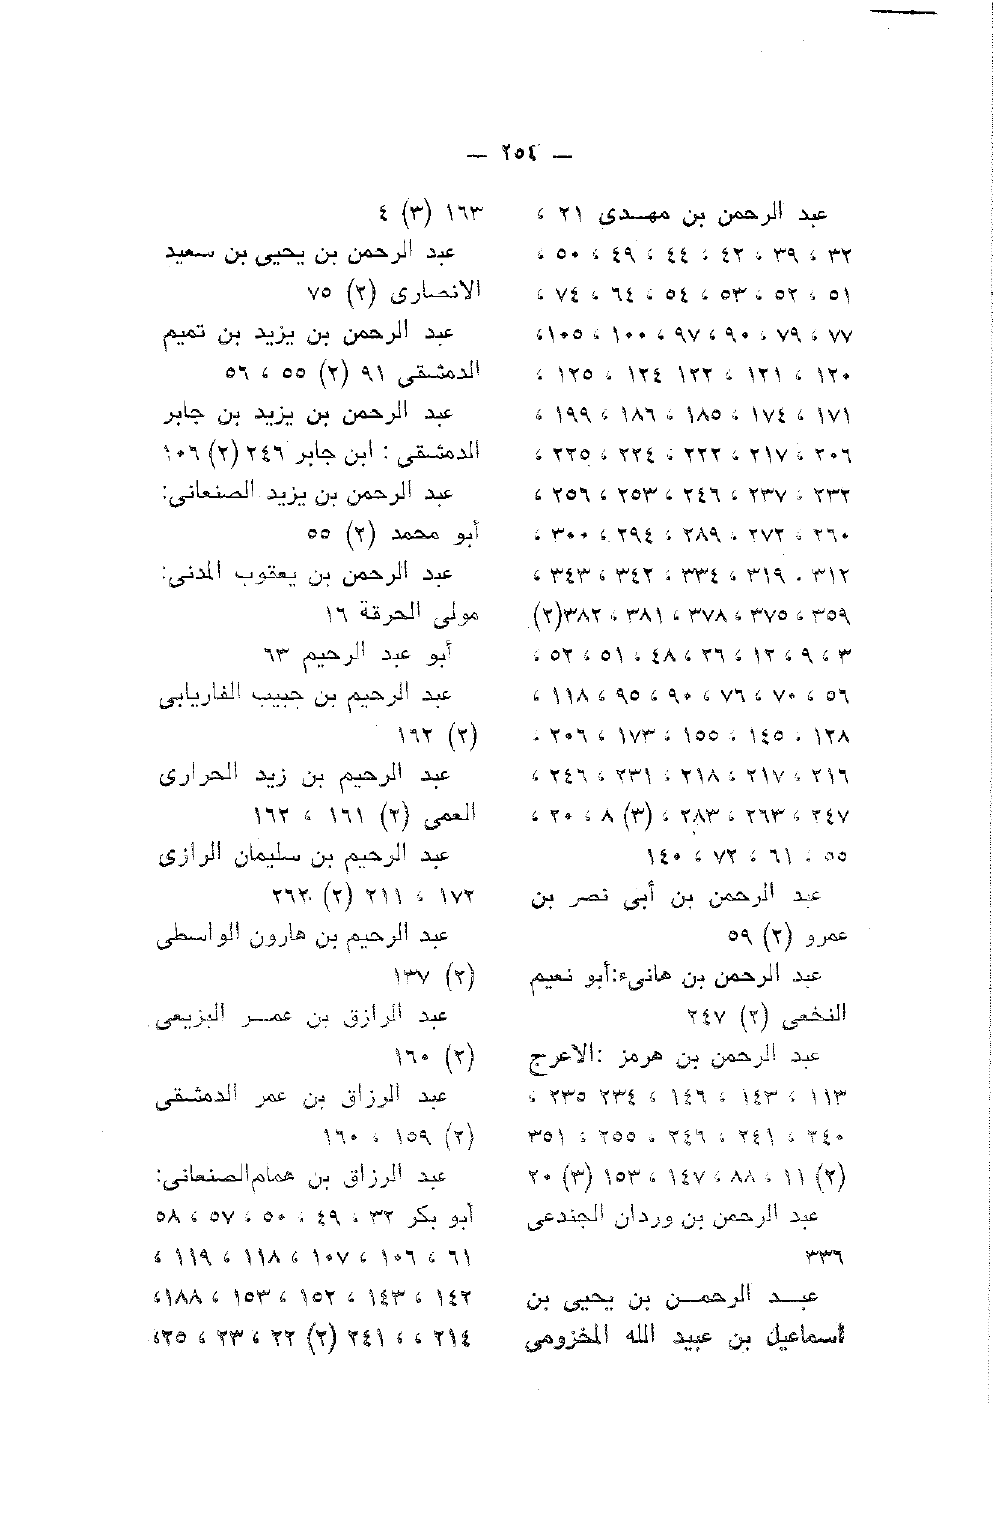 — ٢٥٤ —
عبد الرحمن بن مهدى ٢١ ،
٣٢ ، ٣٩ ، ٤٢ ، ٤٤ ، ٤٩ ، ٥٠ ،
٥١ ، ٥٢ ، ٥٣ ، ٥٤ ، ٦٤ ، ٧٤ ،
٧٧ ، ٧٩ ، ٩٠ ، ٩٧ ، ١٠٠ ، ١٠٥،
١٢٠ ، ١٢١ ، ١٢٢ ١٢٤ ، ١٢٥ ،
١٧١ ، ١٧٤ ، ١٨٥ ، ١٨٦ ، ١٩٩ ،
٢٠٦ ، ٢١٧ ، ٢٢٢ ، ٢٢٤ ، ٢٢٥ ،
٢٣٢ ، ٢٣٧ ، ٢٤٦ ، ٢٥٣ ، ٢٥٦ ،
٢٦٠ ، ٢٧٢ ، ٢٨٩ ، ٢٩٤ ، ٣٠٠ ،
٣١٢ ، ٣١٩ ، ٣٣٤ ، ٣٤٢ ، ٣٤٣ ،
٣٥٩ ، ٣٧٥ ، ٣٧٨ ، ٣٨١ ، ٣٨٢(٢)
٣ ، ٩ ، ١٢ ، ٢٦ ، ٤٨ ، ٥١ ، ٥٢ ،
٥٦ ، ٧٠ ، ٧٦ ، ٩٠ ، ٩٥ ، ١١٨ ،
١٢٨ ، ١٤٥ ، ١٥٥ ، ١٧٣ ، ٢٠٦ ،
٢١٦ ، ٢١٧ ، ٢١٨ ، ٢٣١ ، ٢٤٦ ،
٢٤٧ ، ٢٦٣ ، ٢٨٣ ، (٣) ٨ ، ٢٠ ،
٥٥ ، ٦١ ، ٧٢ ، ١٤٠
عبد الرحمن بن أبى نصر بن
عمرو (٢) ٥٩
عبد الرحمن بن هانىء:أبو نعيم
النخعى (٢) ٢٤٧
عبد الرحمن بن هرمز :الاعرج
١١٣ ، ١٤٣ ، ١٤٦ ، ٢٣٤ ٢٣٥ ،
٢٤٠ ، ٢٤١ ، ٢٤٦ ، ٢٥٥ ، ٣٥١
(٢) ١١ ، ٨٨ ، ١٤٧ ، ١٥٣ (٣) ٢٠
عبد الرحمن بن وردان الجندعى
٣٣٦
عبد الرحمن بن يحيى بن
اسماعيل بن عبيد الله المخزومى
١٦٣ (٣) ٤
عبد الرحمن بن يحيى بن سعيد
الانصارى (٢) ٧٥
عبد الرحمن بن يزيد بن تميم
الدمشقى ٩١ (٢) ٥٥ ، ٥٦
عبد الرحمن بن يزيد بن جابر
الدمشقى : ابن جابر ٢٤٦ (٢) ١٠٦
عبد الرحمن بن يزيد الصنعانى:
أبو محمد (٢) ٥٥
عبد الرحمن بن يعقوب المدنى:
مولى الحرقة ١٦
أبو عبد الرحيم ٦٣
عبد الرحيم بن حبيب الفاريابى
(٢) ١٩٢
عبد الرحيم بن زيد الحرارى
العمى (٢) ١٦١ ، ١٦٢
عبد الرحيم بن سليمان الرازى
١٧٢ ، ٢١١ (٢) ٢٦٢
عبد الرحيم بن هارون الواسطى
(٢) ١٣٧
عبد الرازق بن عمر البزيعى
(٢) ١٦٠
عبد الرزاق بن عمر الدمشقى
(٢) ١٥٩ ، ١٦٠
عبد الرزاق بن همام الصنعانى:
أبو بكر ٣٢ ، ٤٩ ، ٥٠ ، ٥٧ ، ٥٨
٦١ ، ١٠٦ ، ١٠٧ ، ١١٨ ، ١١٩ ،
١٤٢ ، ١٤٣ ، ١٥٢ ، ١٥٣ ، ١٨٨،
٢١٤ ، ، ٢٤١ (٢) ٢٢ ، ٢٣ ، ٢٥،